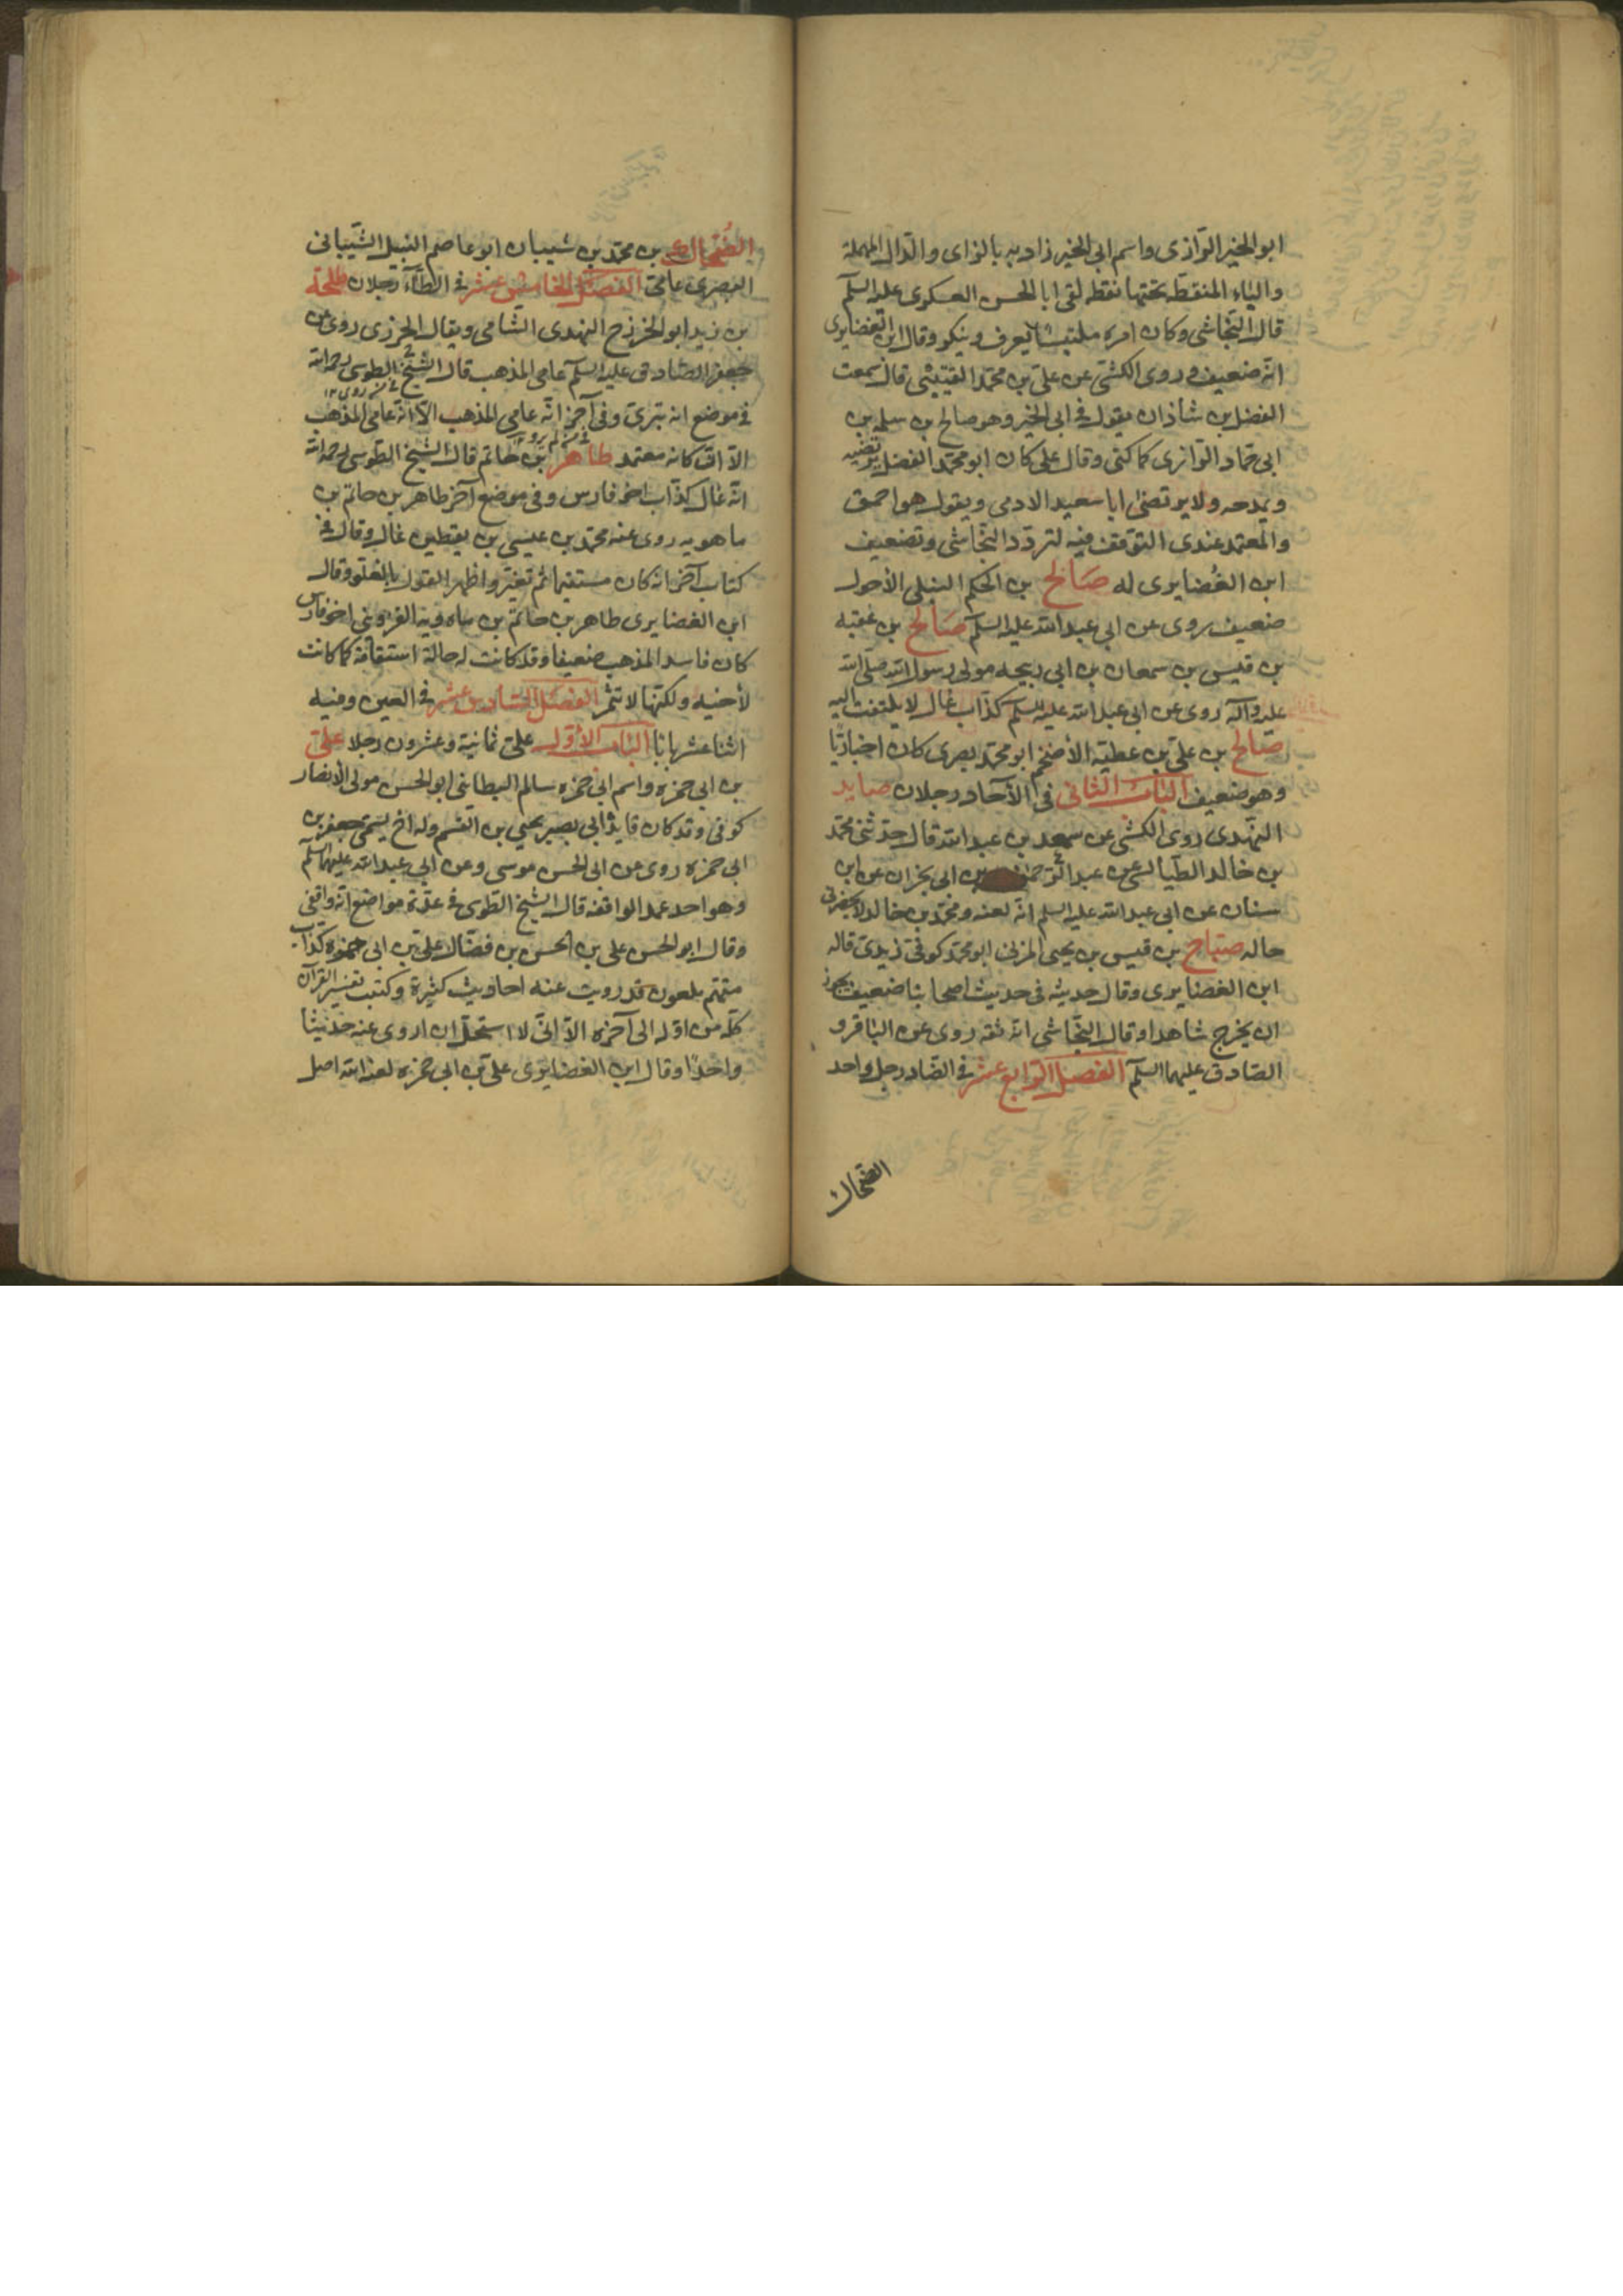 ابو الخير الرّازى واسم ابى الخير زاذبه بالزاى والدّال المهملة
والباء المنقطة تحتها نقطة لقى ابا الحسن العسكرى عليه السلم
قال النجّاشى وكان امره ملتبسًا يعرف وينكر وقال ابن الغضايرى
انّه ضعيف وروى الكشّى عن علىّ بن محمّد القتيبى قال سمعت
الفضل بن شاذان يقول فى ابى الخير وهو صالح بن سلمه بن
ابى حمّاد الرّازى كما كنى وقال على كان ابو محمّد الفضل يرتضيه
ويمدحه ولا يرتضى ابا سعيد الادمى ويقول هو احمق
والمعتمد عندى التوقّف فيه لتردّد النجّاشى وتضعيف
ابن الغُضايرى له صَالح بن الحكم النيلى الأحول
ضعيف روى عن ابى عبد الله عليه السلم صَالح بن عقبة
بن قيس بن سمعان بن ابى ربيحه مولى رسول الله صلى الله
عليه وآله روى عن ابى عبد الله عليه السلم كذّاب غال لا يلتفت اليه
صَالح بن علىّ بن عطيّة الأضخم ابو محمّد بصرى كان اخباريّا
وهو ضعيف الباب الثانى فى الآحاد رجلان صايد
النهدى روى الكشى عن سعد بن عبد الله قال حدّثنى محمّد
بن خالد الطيالسى عن عبد الرّحمن بن ابى نجران عن ابن
سنان عن ابى عبد الله عليه السلم انّه لعنه ومحمّد بن خالد لا يحضرنى
حاله صَبّاح بن قيس بن يحيى المزنى ابو محمّد كوفىّ زيدىّ قاله
ابن الغضايرى وقال حديثه فى حديث اصحابنا ضعيف يجوز
ان يخرج شاهدا وقال النّجاشى انّه ثقه روى عن الباقر و
الصّادق عليهما السلم الفصل الرّابع عشر فى الضّاد رجل واحد
الضّحاك
الضُحّاك بن محمّد بن شيبان ابو عاصم النبيل الشّيبانى
البصرى عامىّ الفصل الخامس عشر فى الطّاء رجلان طلحة
بن زيد ابو الخزرج النهدى الشّامى ويقال الخزرى روى عن
جعفر الصّادق عليه السلم عامى المذهب قال الشيخ الطوسى رحمه الله
فى موضع انه بترىّ وفى آخر انّه عامى المذهب الّا انّه عامى المذهب
الّا انّ كتابه معتمد طاهر بن حاتم قال الشيخ الطوسى رحمه الله
انّه غال كذّاب اخو فارس وفى موضع آخر طاهر بن حاتم بن
ماهويه روى عنه محمّد بن عيسى بن يقطين غال وقال فى
كتاب آخر انه كان مستقيما ثم تغيّر واظهر القول بالغلو وقال
ابن الغضايرى طاهر بن حاتم بن ماهويه القزوينى اخو فارس
كان فاسد المذهب ضعيفا وقد كانت له حالة استقامة كما كانت
لأخيه ولكنّها لا تثمر الفصل السّادس عشر فى العين وفيه
اثنا عشر بابا الباب الأوّل علىّ ثمانية وعشرون رجلا علىّ
بن ابى حمزه واسم ابى حمزه سالم البطاينى ابو الحسن مولى الأنصار
كوفى وقد كان قايد ابى بصير يحيى بن القسم وله اخ يسمّى جعفر بن
ابى حمزه روى عن ابى الحسن موسى وعن ابى عبد الله عليهما السلم
وهو احد عمد الواقفه قال الشيخ الطوسى فى عدّة مواضع انّه واقفى
وقال ابو الحسن على بن الحسن بن فضّال علىّ بن ابى حمزه كذّاب
متّهم ملعون قد رويت عنه احاديث كثيرة وكتبت تفسير القرآن
كلّه من اوّله الى آخره الّا انّى لا استحلّ ان اروى عنه حديثا
واحدًا وقال ابن الغضايرى علىّ بن ابى حمزه لعنه الله اصل